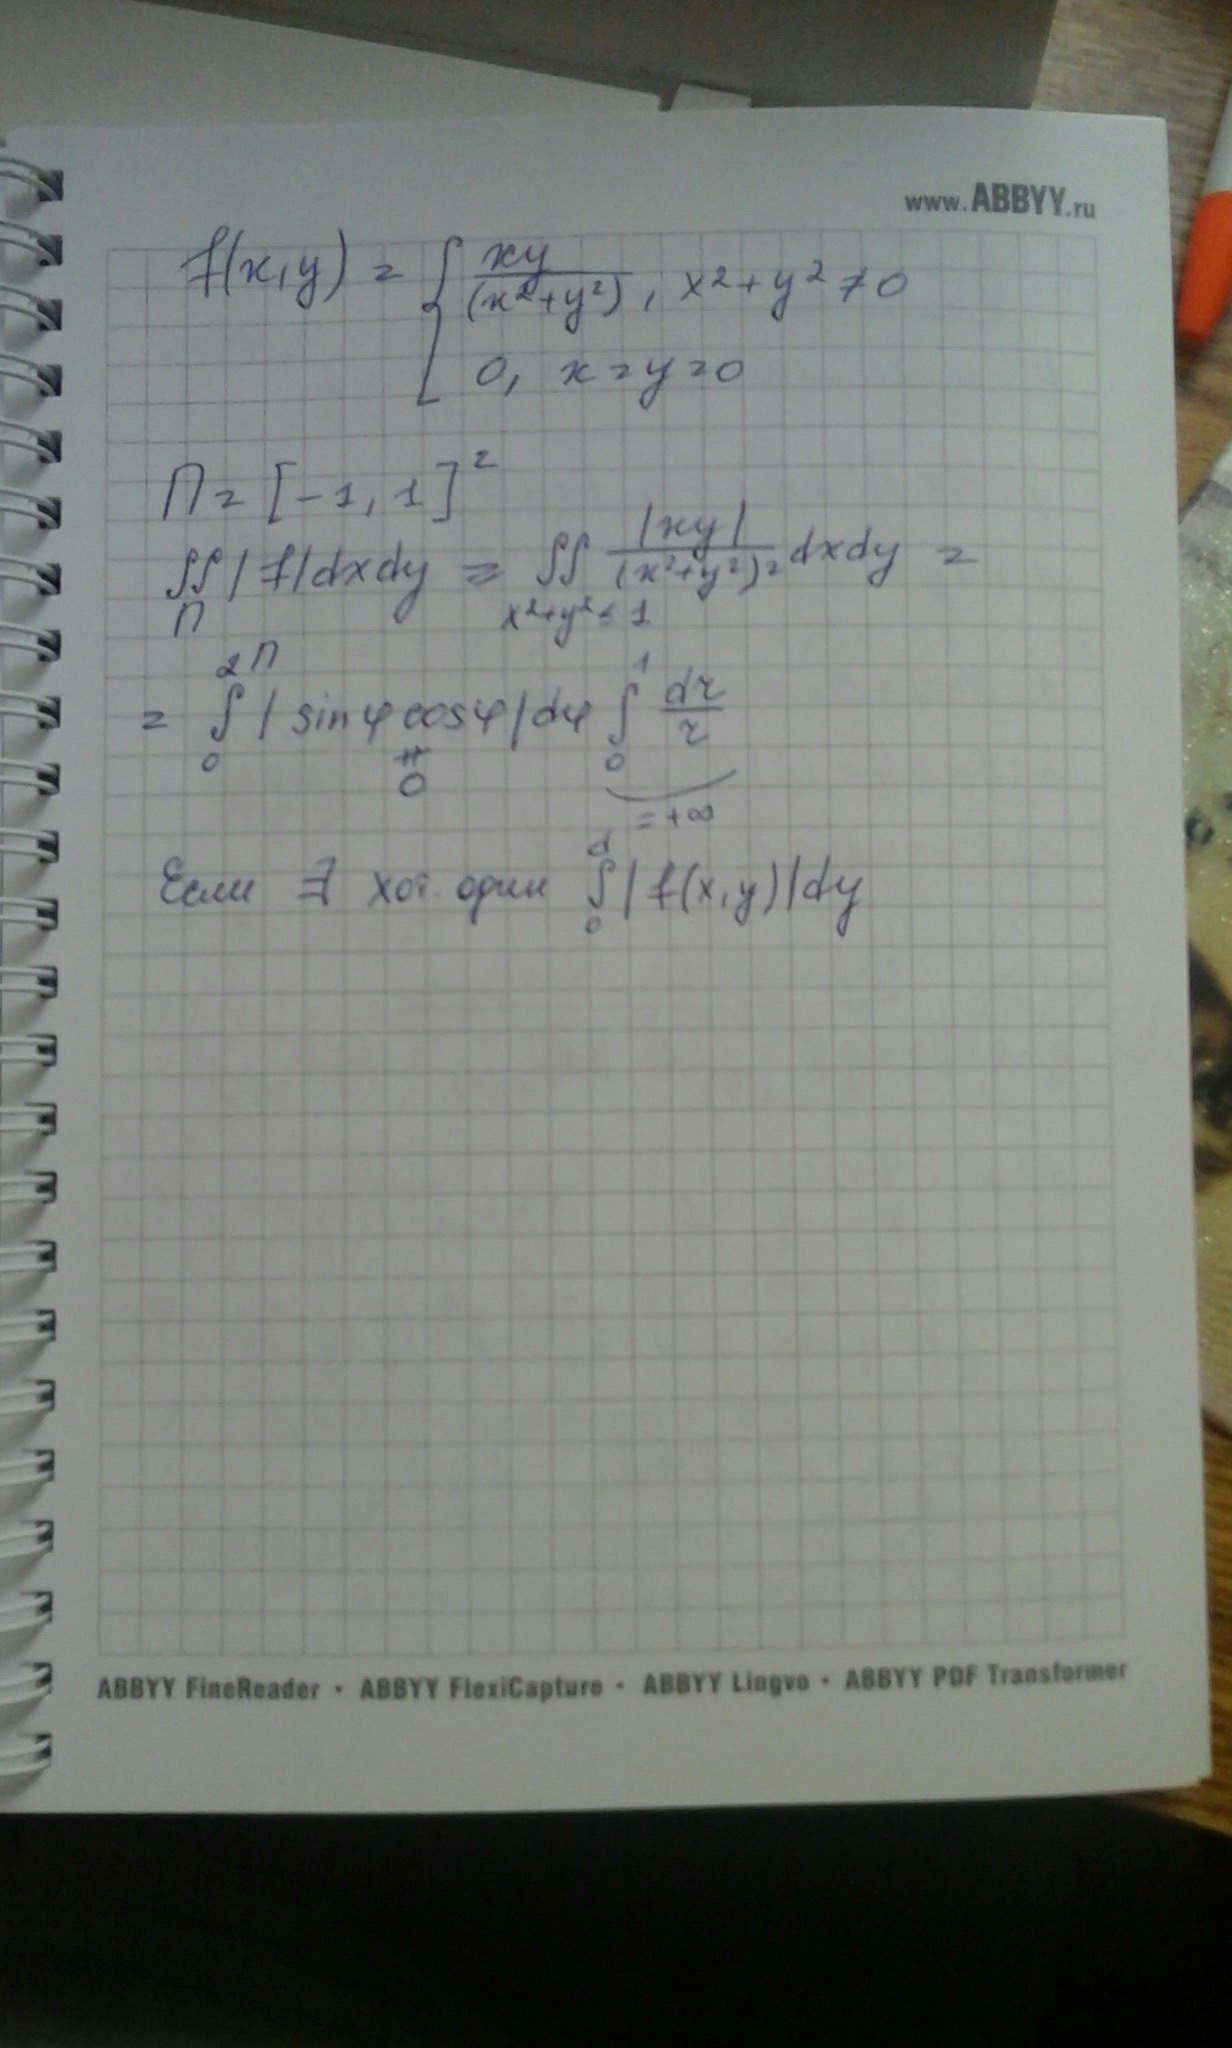 www.ABBYY.ru
f(x,y) = { xy/(x²+y²), x²+y² ≠ 0
0, x=y=0
П = [-1, 1]²
∬_П |f|dxdy ≥ ∬_{x²+y²≤1} |xy|/(x²+y²)² dxdy =
= ∫_0^{2П} |sinφ cosφ|dφ ∫_0^1 dr/r
≠ 0 = +∞
Если ∃ хот. один ∫_0^d |f(x,y)|dy
ABBYY FineReader • ABBYY FlexiCapture • ABBYY Lingvo • ABBYY PDF Transformer